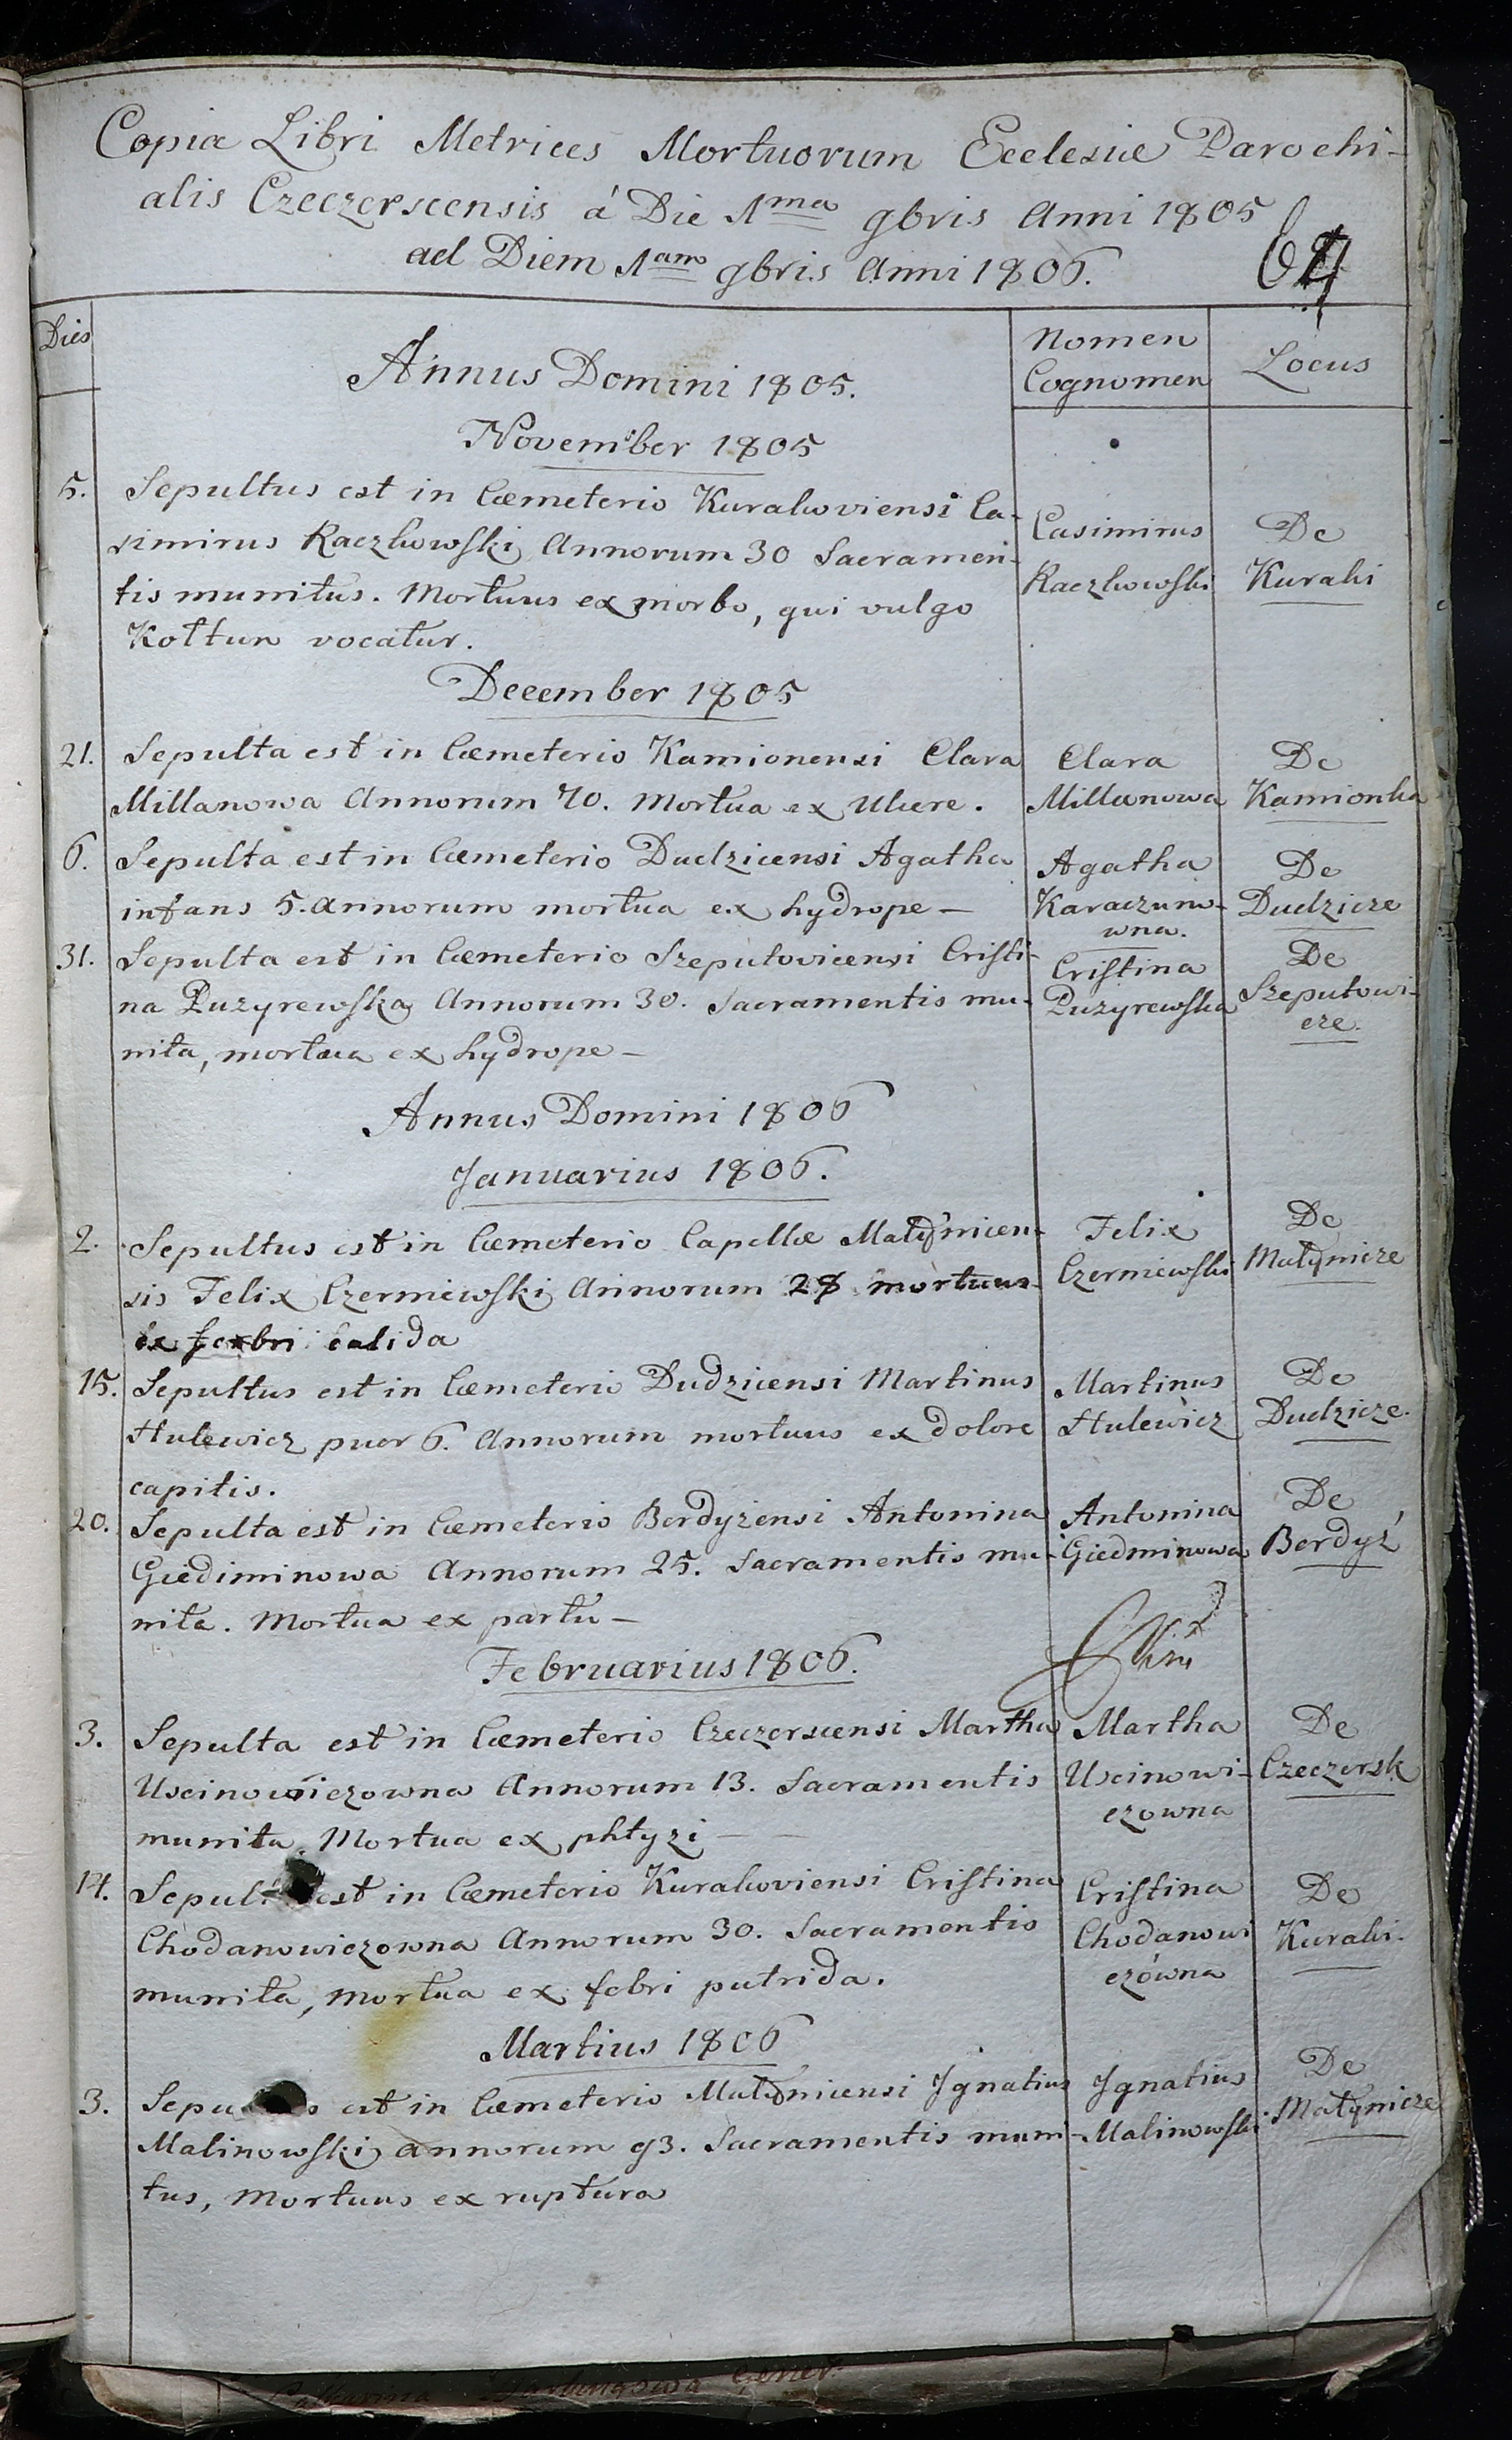 Copia Libri Metrices Mortuorum Ecclesiæ Parochi-
alis Czeczerscensis á Die 1ma 9bris Anni 1805
ad Diem 1am 9bris Anni 1806.
Dies
Nomen
Cognomen
Locus
Annus Domini 1805.
November 1805
5.
Sepultus est in Cœmeterio Kurakoviensi Ca-
simirus Raczkowski Annorum 30 Sacramen-
tis munitus. Mortuus ex morbo, qui vulgo
Kottun vocatur.
Casimirus
Raczkowski
De
Kuraki
December 1805
21.
Sepulta est in Cœmeterio Kamionensi Clara
Millanowa Annorum 70. Mortua ex Ulcere.
Clara
Millanowa
De
Kamionka
6.
Sepulta est in Cœmeterio Dudzicensi Agatha
infans 5. annorum mortua ex hydrope –
Agatha
Karaczuno-
wna.
De
Dudzicze
31.
Sepulta est in Cœmeterio Szeputovicensi Cristi-
na Puzyrewska Annorum 30. Sacramentis mu-
nita, mortua ex hydrope –
Cristina
Puzyrewska
De
Szeputowi-
cze.
Annus Domini 1806
Januarius 1806.
2.
Sepultus est in Cœmeterio Capellæ Matynicen-
sis Felix Czerniewski Annorum 28 mortuus
ex febri calida
Felix
Czerniewski
De
Matynicze
15.
Sepultus est in Cœmeterio Dudzicensi Martinus
Hulewicz puer 6. Annorum mortuus ex dolore
capitis.
Martinus
Hulewicz
De
Dudzicze.
20.
Sepulta est in Cœmeterio Berdyzensi Antonina
Giediminowa Annorum 25. Sacramentis mu-
nita. Mortua ex partu –
Antonina
Giedminowa
De
Berdyż
Februarius 1806.
3.
Sepulta est in Cœmeterio Czeczerscensi Martha
Uscinowiczowna Annorum 13. Sacramentis
munita. Mortua ex phtyzi –
Martha
Uscinowi-
czowna
De
Czeczersk
14.
est in Cœmeterio Kurakoviensi Cristina
Chodanowiczowna Annorum 30. Sacramentis
munita, mortua ex febri putrida.
Cristina
Chodanowi
czówna
De
Kuraki.
Martius 1806
3.
est in Cœmeterio Matynicensi Jgnatius
Malinowski annorum 93. Sacramentis muni-
tus, Mortuus ex ruptura
Jgnatius
Malinowski
De
Matynicze